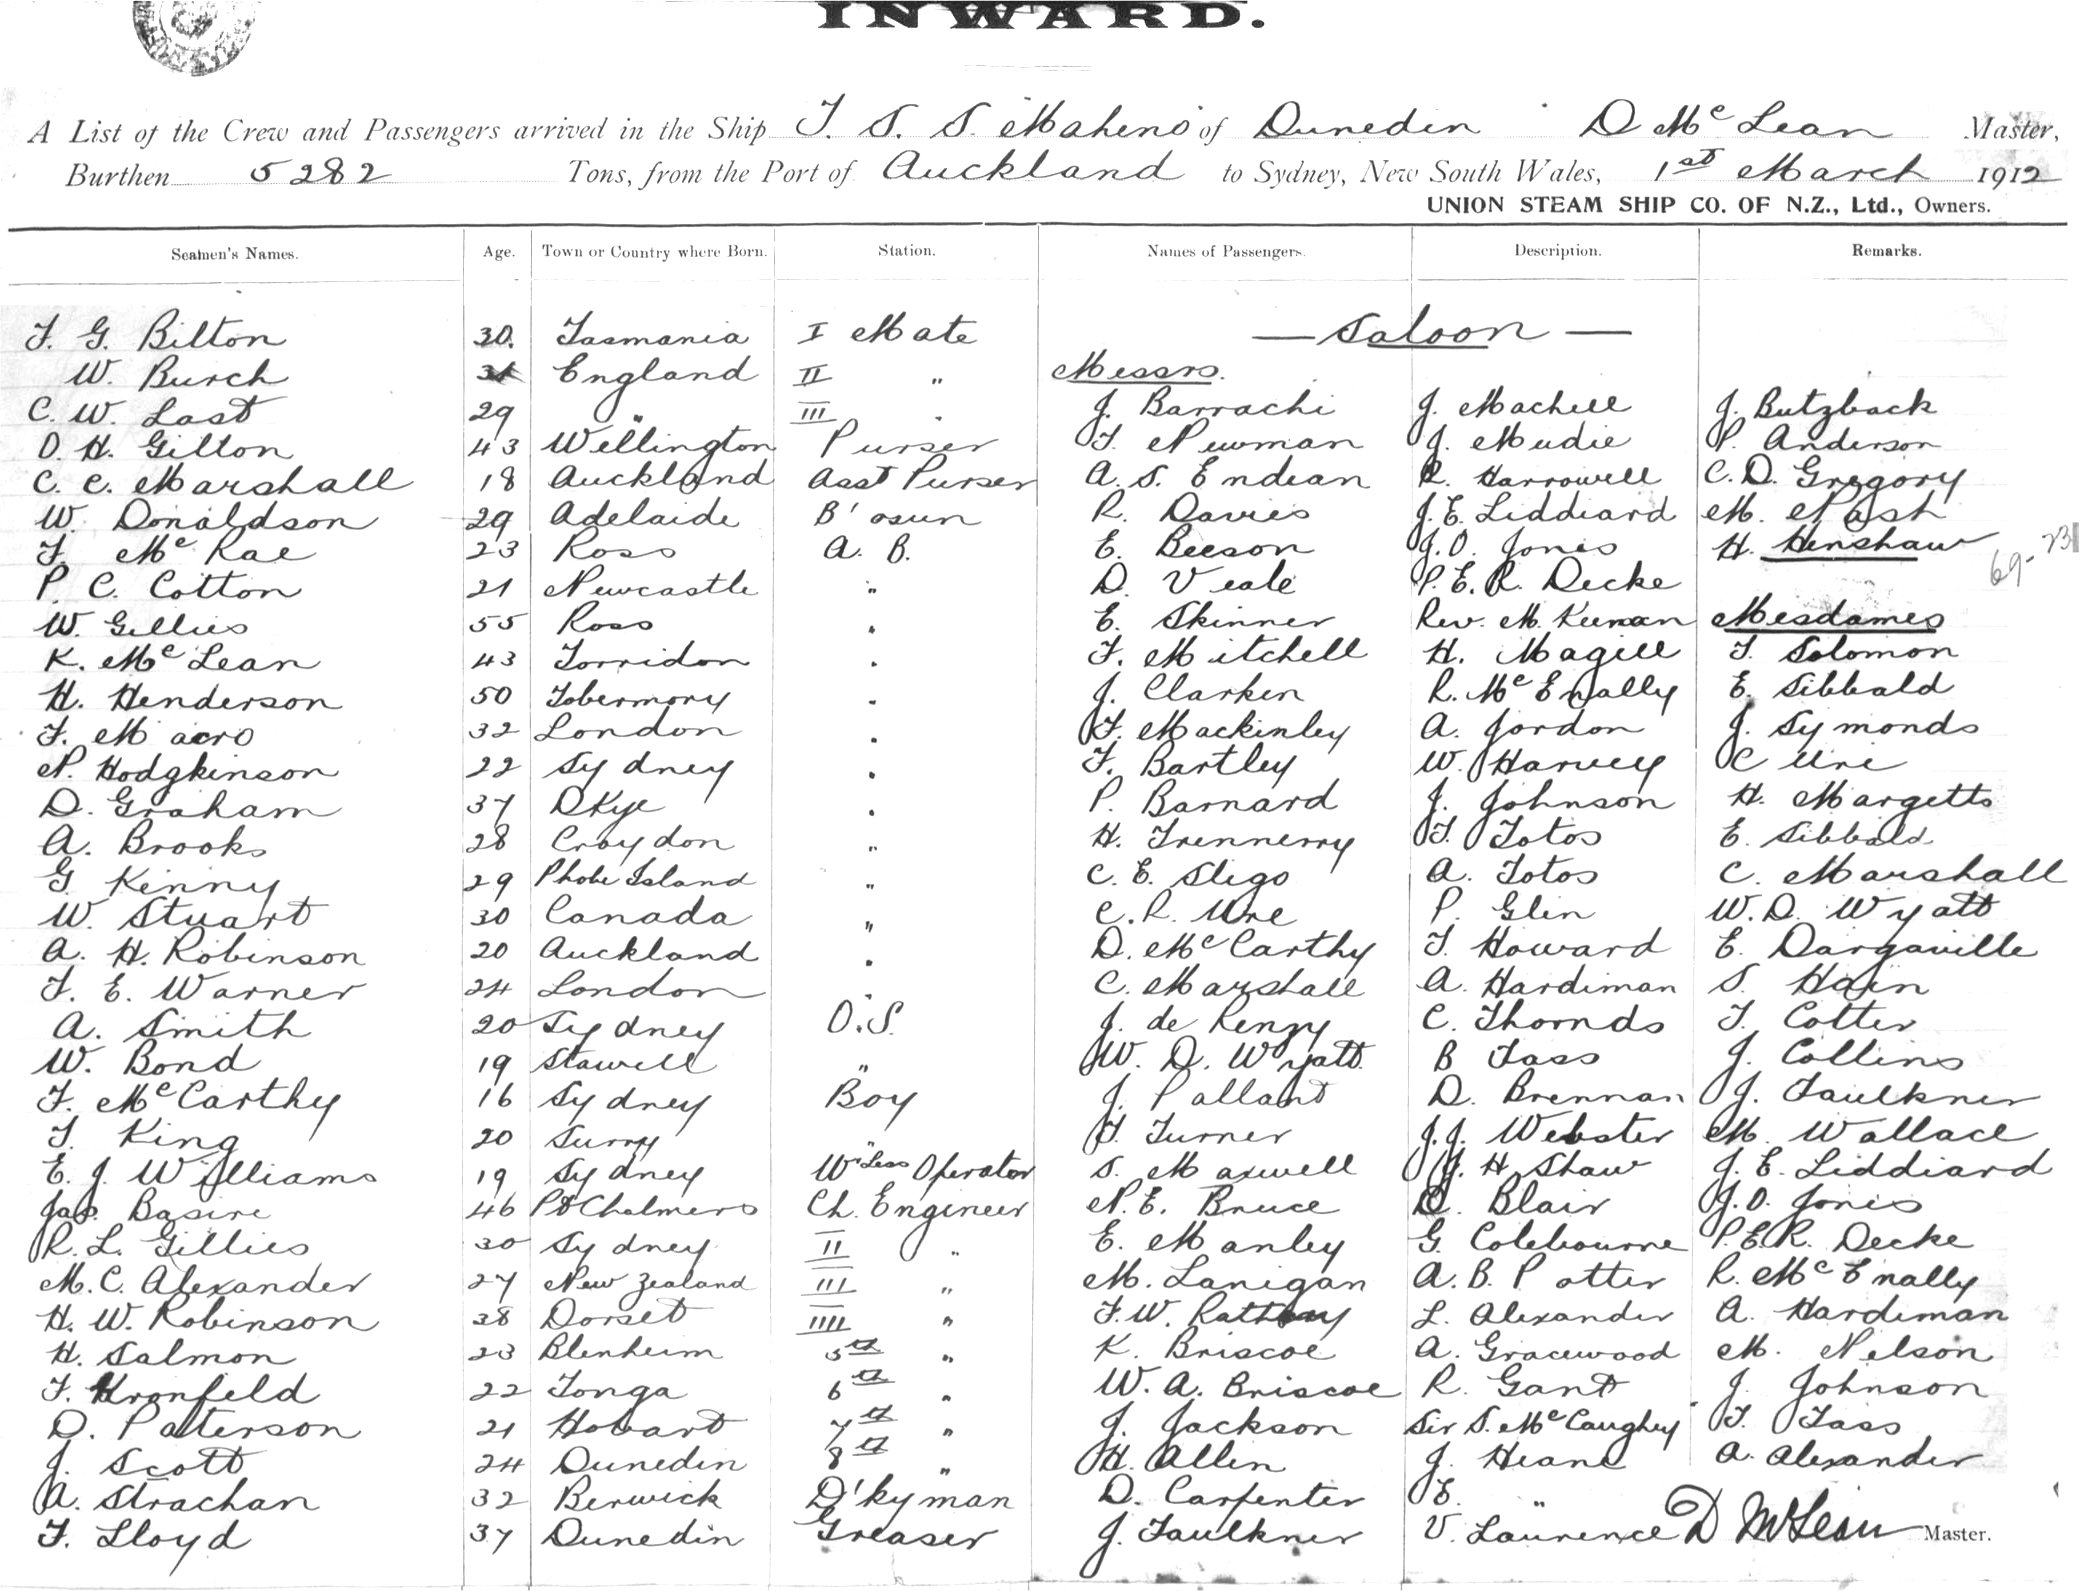 INWARD.
A List of the Crew and Passengers arrived in the Ship T. S. S. "Maheno" of Dunedin D McLean Master,
Burthen 5282 Tons, from the Port of Auckland to Sydney, New South Wales, 1st March 1912
UNION STEAM SHIP CO. OF N.Z., Ltd., Owners.
Seamen's Names. Age. Town or Country where Born. Station. Names of Passengers. Description. Remarks.
F. G. Bilton 30. Tasmania I Mate — Saloon —
W. Burch 31 England II " Messrs.
C. W. Last 29 " III " J. Barrachi J. Machell J. Butzback
O. H. Gilton 43 Wellington Purser T. Newman J. Mudie P. Anderson
C. C. Marshall 18 Auckland Asst Purser A. S. Endean R. Harrowell C. D. Gregory
W. Donaldson 29 Adelaide B'osun R. Davies J. E. Liddiard M. Nash
F. McRae 23 Ross A. B. E. Beeson J. O. Jones H. Henshaw 69-23
P. C. Cotton 21 Newcastle " D. Veale P. E. R. Decke
W. Gillies 55 Ross " E. Skinner Rev. M. Keenan Mesdames
K. McLean 43 Torridon " F. Mitchell H. Magill T. Solomon
H. Henderson 50 Tobermory " J. Clarken R. McEnally E. Sibbald
F. Macro 32 London " F. Mackinley A. Jordon J. Symonds
N. Hodgkinson 22 Sydney " F. Bartley W. Harvey C Ure
D. Graham 37 Skye " P. Barnard J. Johnson H. Margetts
A. Brooks 28 Croydon " H. Trennerry T. Totos E. Sibbald
G. Kenny 29 Phobe Island " C. E. Sligo A. Totos C. Marshall
W. Stuart 30 Canada " C. R. Ure P. Glin W. D. Wyatt
A. H. Robinson 20 Auckland " D. McCarthy T. Howard E. Dargaville
F. E. Warner 24 London " C. Marshall A. Hardiman S. Hain
A. Smith 20 Sydney O. S. J. de Renzy C. Thornds T. Cotter
W. Bond 19 Stawell " W. D. Wyatt B Tass J. Collins
F. McCarthy 16 Sydney Boy J. Pallant D. Brennan J. Faulkner
T. King 20 Surry " F. Turner J. J. Webster M. Wallace
E. J. Williams 19 Sydney W'Less Operator S. Maxwell J. H. Shaw J. E. Liddiard
Jas. Basire 46 Pt Chalmers Ch. Engineer N. E. Bruce D. Blair J. O. Jones
R. L. Gillies 30 Sydney II " E. Manley G. Colebourne P. E. R. Decke
M. C. Alexander 27 New Zealand III " M. Lanigan A. B. Potter R. McEnally
H. W. Robinson 38 Dorset IIII " F. W. L. Alexander A. Hardiman
H. Salmon 23 Blenheim 5th " K. Briscoe A. Gracewood M. Nelson
F. Kronfeld 22 Tonga 6th " W. A. Briscoe R. Gant J. Johnson
D. Patterson 21 Hobart 7th " J. Jackson Sir S. McCaughey T. Tass
J. Scott 24 Dunedin 8th " H. Allen J. Heane A. Alexander
A. Strachan 32 Berwick D'kyman D. Carpenter E. "
F. Lloyd 37 Dunedin Greaser J. Faulkner V. Laurence D McLean Master.